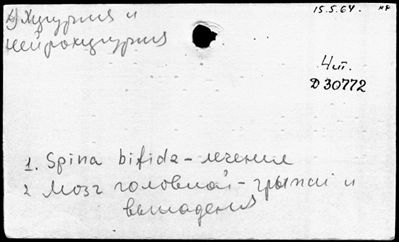 15.5.64.
Хирургия и
нейрохирургия
Чит.
Д 30772
1. Spina bifida - лечение
2 Мозг головной - грыжи и
выпадения